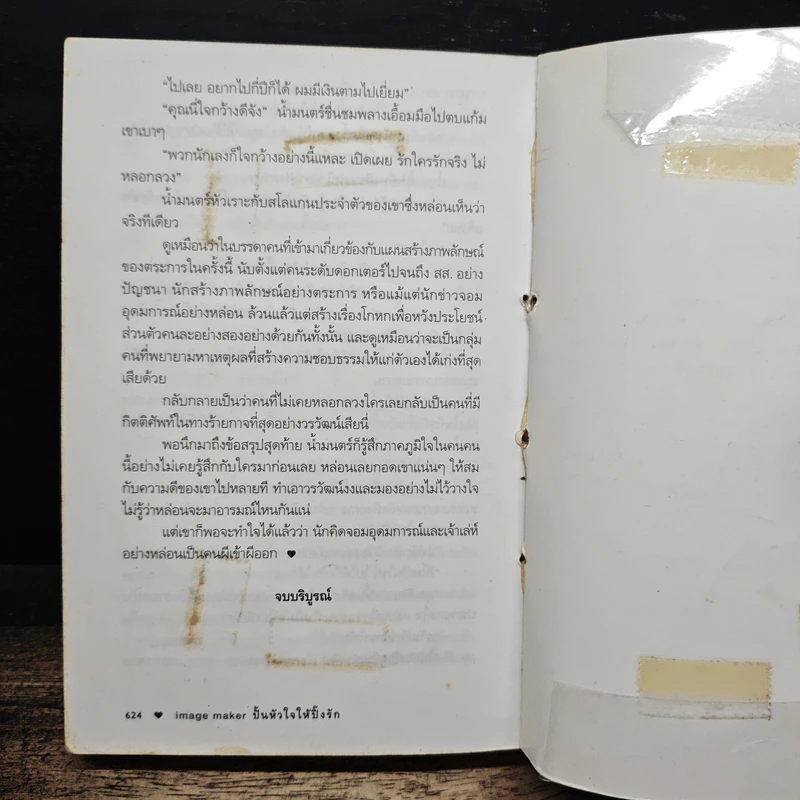 “ไปเลย อยากไปกี่ปีก็ได้ ผมมีเงินตามไปเยี่ยม”
“คุณนี่ใจกว้างดีจัง” น้ำมนตร์ชื่นชมพลางเอื้อมมือไปตบแก้ม
เขาเบาๆ
“พวกนักเลงก็ใจกว้างอย่างนี้แหละ เปิดเผย รักใครรักจริง ไม่
หลอกลวง”
น้ำมนตร์หัวเราะกับสโลแกนประจำตัวของเขาซึ่งหล่อนเห็นว่า
จริงทีเดียว
ดูเหมือนว่าในบรรดาคนที่เข้ามาเกี่ยวข้องกับแผนสร้างภาพลักษณ์
ของตระการในครั้งนี้ นับตั้งแต่คนระดับดอกเตอร์ไปจนถึง สส. อย่าง
ปัญชนา นักสร้างภาพลักษณ์อย่างตระการ หรือแม้แต่นักข่าวจอม
อุดมการณ์อย่างหล่อน ล้วนแล้วแต่สร้างเรื่องโกหกเพื่อหวังประโยชน์
ส่วนตัวคนละอย่างสองอย่างด้วยกันทั้งนั้น และดูเหมือนว่าจะเป็นกลุ่ม
คนที่พยายามหาเหตุผลที่สร้างความชอบธรรมให้แก่ตัวเองได้เก่งที่สุด
เสียด้วย
กลับกลายเป็นว่าคนที่ไม่เคยหลอกลวงใครเลยกลับเป็นคนที่มี
กิตติศัพท์ในทางร้ายกาจที่สุดอย่างวรวัฒน์เสียนี่
พอนึกมาถึงข้อสรุปสุดท้าย น้ำมนตร์ก็รู้สึกภาคภูมิใจในคนคน
นี้อย่างไม่เคยรู้สึกกับใครมาก่อนเลย หล่อนเลยกอดเขาแน่นๆ ให้สม
กับความดีของเขาไปหลายที ทำเอาวรวัฒน์งงและมองอย่างไม่ไว้วางใจ
ไม่รู้ว่าหล่อนจะมาอารมณ์ไหนกันแน่
แต่เขาก็พอจะทำใจได้แล้วว่า นักคิดจอมอุดมการณ์และเจ้าเล่ห์
อย่างหล่อนเป็นคนผีเข้าผีออก ♥
จบบริบูรณ์
624 ♥ image maker ปั้นหัวใจให้ปิ๊งรัก